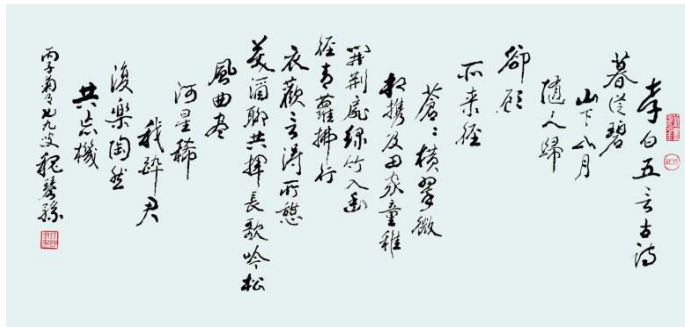 李白五言古诗
暮從碧
山下山月
隨人歸
卻顧
所来徑
蒼〻横翠微
相携及田家童稚
開荆扉绿竹入幽
徑青蘿拂行
衣歡言得所憩
美酒聊共揮長歌吟松
風曲盡
河星稀
我醉君
復樂陶然
共忘機
丙子菊月七九叟